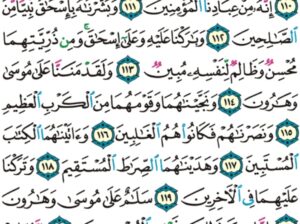 ١١٠ إِنَّهُۥ مِنۡ عِبَادِنَا ٱلۡمُؤۡمِنِينَ ١١١ وَبَشَّرۡنَٰهُ بِإِسۡحَٰقَ نَبِيّٗا مِّنَ
ٱلصَّٰلِحِينَ ١١٢ وَبَٰرَكۡنَا عَلَيۡهِ وَعَلَىٰٓ إِسۡحَٰقَۚ وَمِن ذُرِّيَّتِهِمَا
مُحۡسِنٞ وَظَالِمٞ لِّنَفۡسِهِۦ مُبِينٞ ١١٣ وَلَقَدۡ مَنَنَّا عَلَىٰ مُوسَىٰ
وَهَٰرُونَ ١١٤ وَنَجَّيۡنَٰهُمَا وَقَوۡمَهُمَا مِنَ ٱلۡكَرۡبِ ٱلۡعَظِيمِ
١١٥ وَنَصَرۡنَٰهُمۡ فَكَانُواْ هُمُ ٱلۡغَٰلِبِينَ ١١٦ وَءَاتَيۡنَٰهُمَا ٱلۡكِتَٰبَ
ٱلۡمُسۡتَبِينَ ١١٧ وَهَدَيۡنَٰهُمَا ٱلصِّرَٰطَ ٱلۡمُسۡتَقِيمَ ١١٨ وَتَرَكۡنَا
عَلَيۡهِمَا فِي ٱلۡأٓخِرِينَ ١١٩ سَلَٰمٌ عَلَىٰ مُوسَىٰ وَهَٰرُونَ